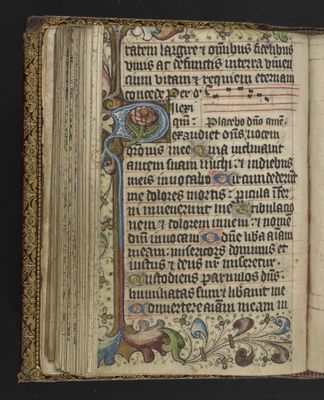 tatem largire ⁊ om̄ibus fidelibus
viuis ac defunctis in terra viuen
cium vitam ⁊ requiem eternam
concede Per d
Dilexi
qm̄ : Placebo dn̄o añ.
exaudiet dn̄s vocem
orationis mee Quia inclinauit
aurem suam michi : ⁊ in diebus
meis inuocabo Circundederūt
me dolores mortis : pericula īfer
ni inuenerunt me Tribulacio
nem ⁊ dolorem inueni : ⁊ nomē
dn̄i inuocaui O dn̄e libā aīam
meam : misericors dominus et
iustus ⁊ deus nr̄ miseretur
Custodiens paruulos dn̄s :
humiliatus sum ⁊ libauit me
Conuertere aīam meam in